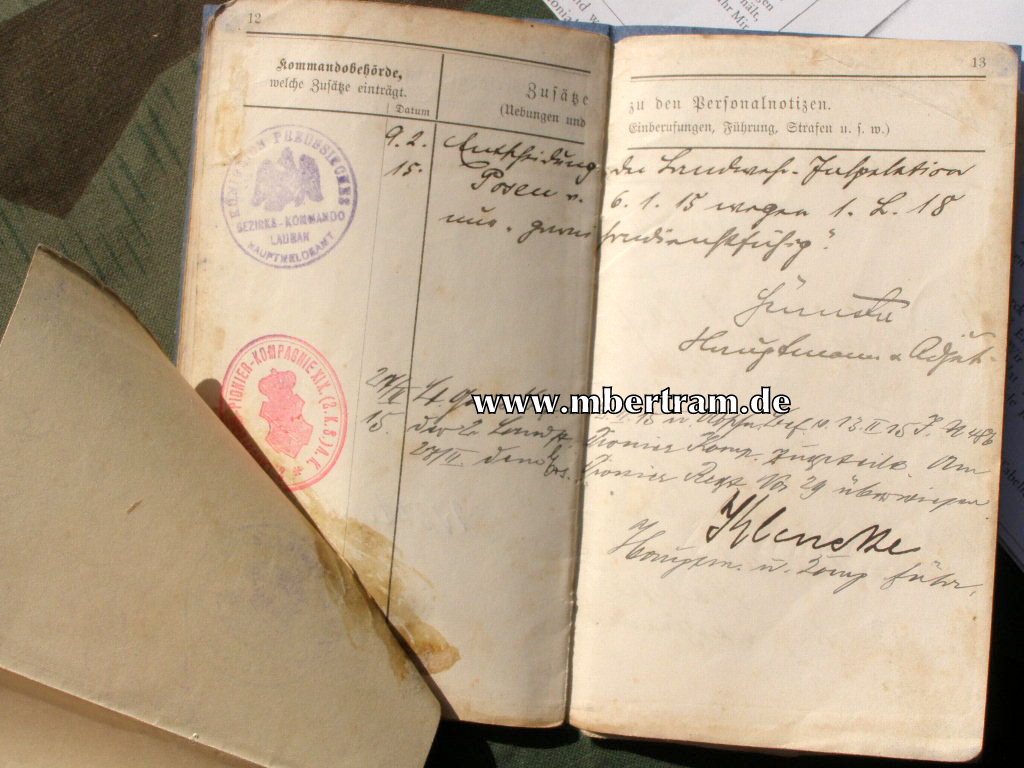 12
Kommandobehörde,
welche Zusätze einträgt.
Datum
Zusätze
(Uebungen und
13
zu den Personalnotizen.
Einberufungen, Führung, Strafen u. s. w.)
KÖNIGLICH PREUSSISCHES
BEZIRKS-KOMMANDO
LAUBAN
HAUPTMELDEAMT
9.2. Entscheidung der Landwehr-Inspektion
15. Posen v. 6. 1. 15 wegen 1. L. 18
nur "garnisondienstfähig".
Hauptmann u. Adjut.
PIONIER-KOMPAGNIE XIX. (2. K. S.) A. K.
www.mbertram.de
15. der 2. Landst. Pionier Komp. zugeteilt. Am
27/II. dem Ers. Pionier Regt No 29 überwiesen
Klencke
Hauptm. u. Komp führ.